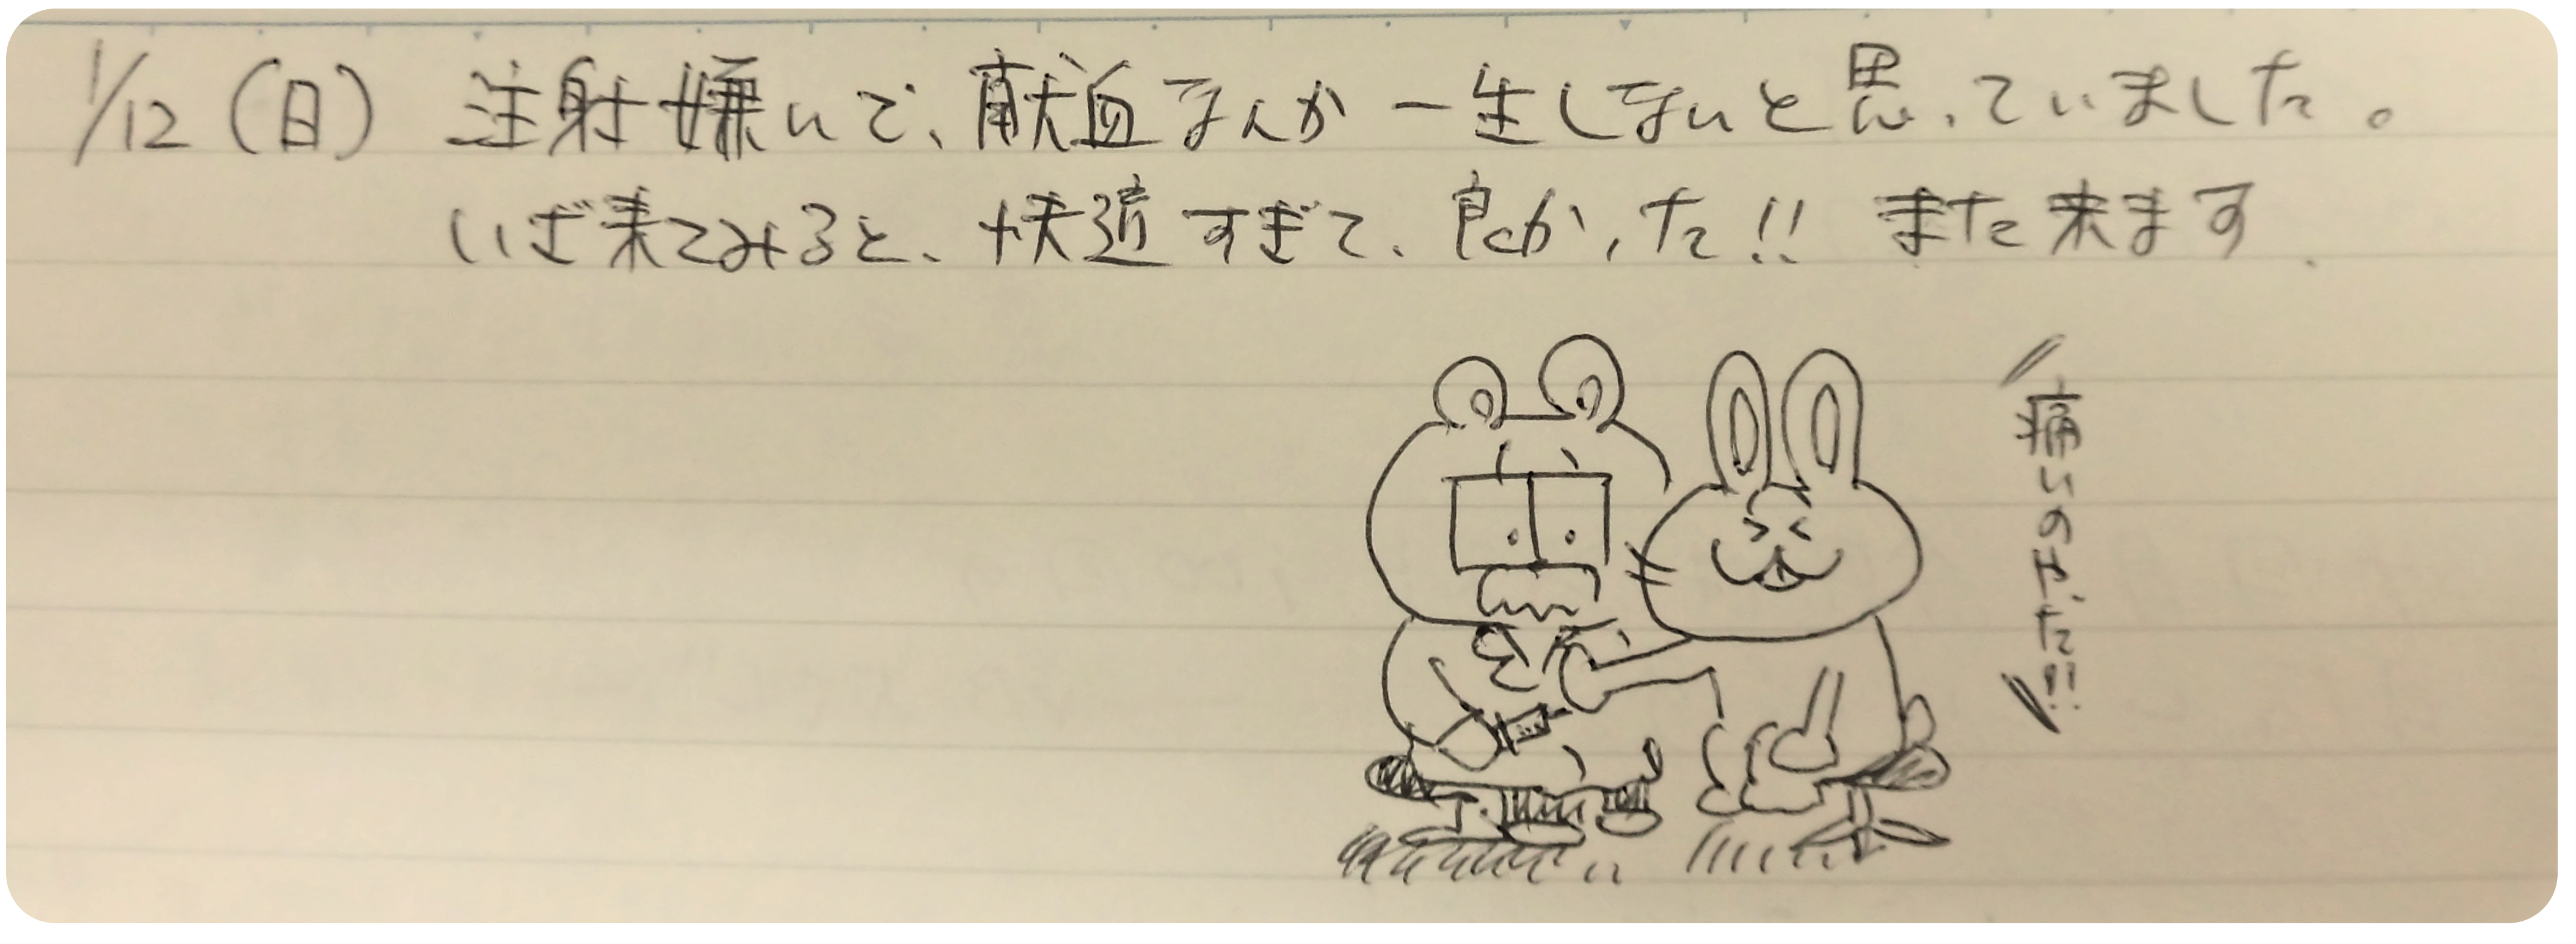 1/12(日) 注射嫌いで、献血なんか一生しないと思っていました。
いざ来てみると、快適すぎて、良かった!! また来ます.
痛いのやだ!!